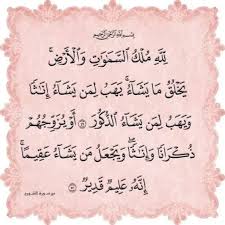 بِسْمِ اللَّهِ الرَّحْمَٰنِ الرَّحِيمِ
لِّلَّهِ مُلْكُ السَّمَٰوَٰتِ وَالْأَرْضِ ۚ
يَخْلُقُ مَا يَشَاءُ ۚ يَهَبُ لِمَن يَشَاءُ إِنَٰثًا
وَيَهَبُ لِمَن يَشَاءُ الذُّكُورَ ۝٤٩ أَوْ يُزَوِّجُهُمْ
ذُكْرَانًا وَإِنَٰثًا ۖ وَيَجْعَلُ مَن يَشَاءُ عَقِيمًا ۚ
إِنَّهُ عَلِيمٌ قَدِيرٌ ۝٥٠
من سورة الشورى